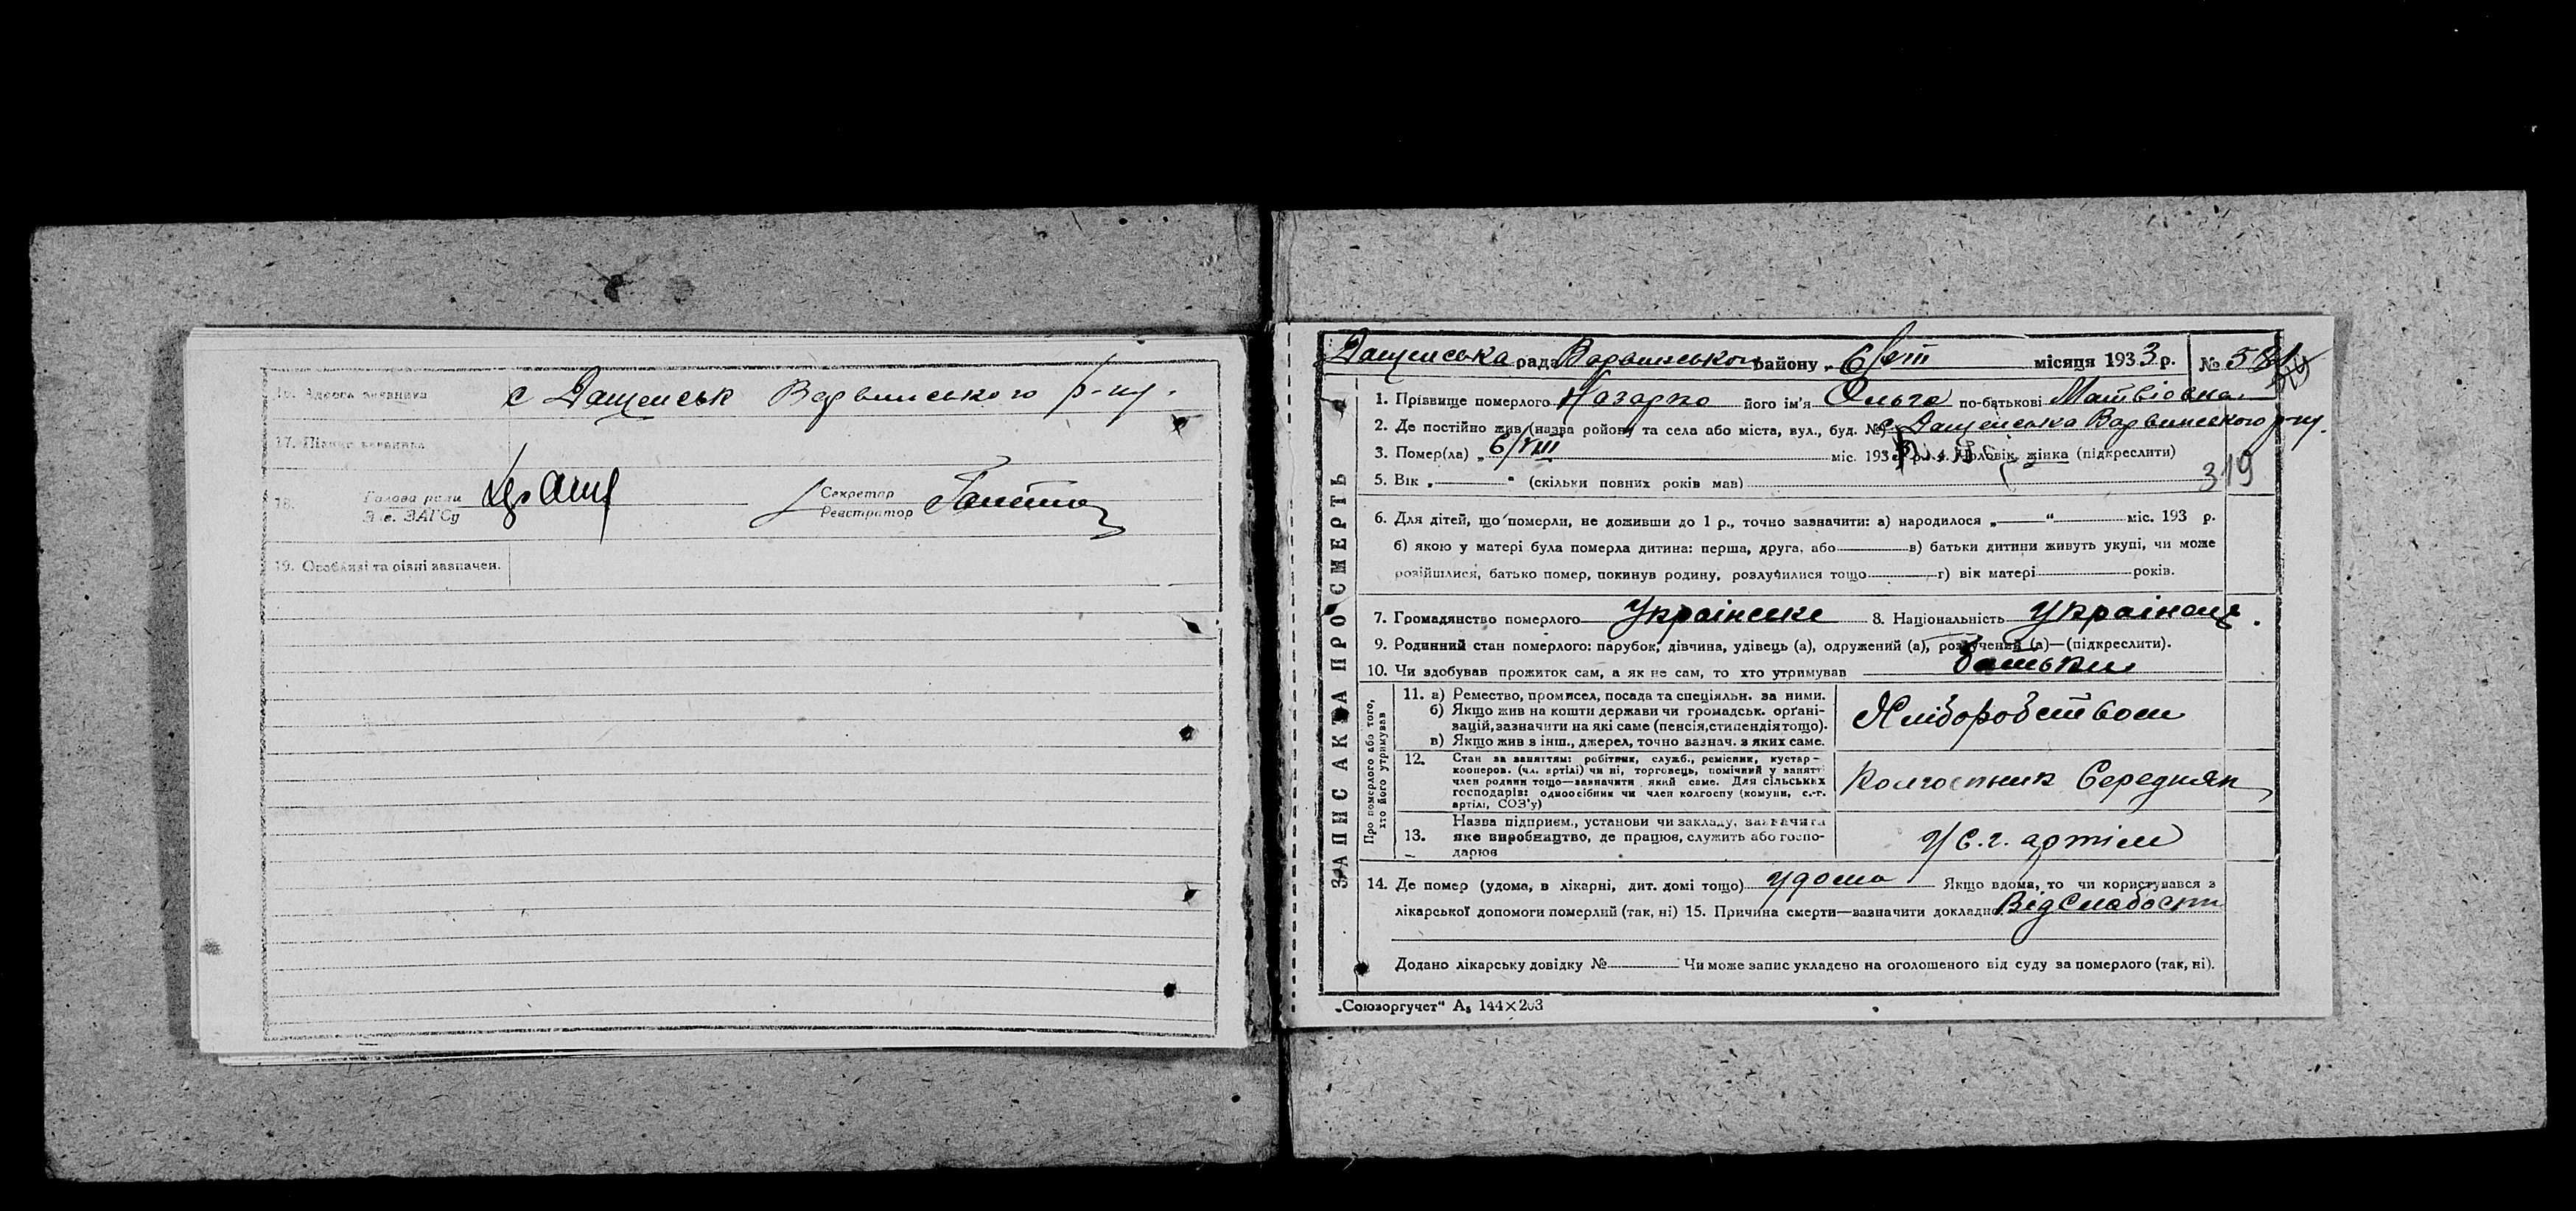 16. Адреса заявника с Дащенськ Варвинського р-ну.
17. Підпис заявника
18. Голова ради
Зав. ЗАГСу
Секретар
Реєстратор
19. Особливі та різні зазначен.
Дащенська рада Варвинського району „6/VIII місяця 1933 р. №
1. Прізвище померлого Назарко його ім'я Ольга по-батькові Матвіовна
2. Де постійно жив (назва району та села або міста, вул., буд. №) с Дащенська Варвинського р-ну.
3. Помер(ла) „ 6/VIII міс. 193 р. 4. Чоловік, жінка (підкреслити)
5. Вік „ “ (скільки повних років мав) 319
6. Для дітей, що померли, не доживши до 1 р., точно зазначити: а) народилося „ “ міс. 193 р.
б) якою у матері була померла дитина: перша, друга, або в) батьки дитини живуть укупі, чи може
розійшлися, батько помер, покинув родину, розлучилися тощо г) вік матері років.
7. Громадянство померлого Українське 8. Національність Українець.
9. Родинний стан померлого: парубок, дівчина, удівець (а), одружений (а), розлучений (а)—(підкреслити).
10. Чи здобував прожиток сам, а як не сам, то хто утримував батьки
Про померлого або того,
хто його утримував
11. а) Ремество, промисел, посада та спеціяльн. за ними.
б) Якщо жив на кошти держави чи громадськ. орґані-
зацій, зазначити на які саме (пенсія, стипендія тощо).
в) Якщо жив з інш., джерел, точно вазнач. з яких саме.
Хліборобством
12. Стан за заняттям: робітник, служб., ремісник, кустар-
кооперов. (чл. артілі) чи ні, торговець, помічний у занятті
член родини тощо—зазначити який саме. Для сільських
господарів: одноосібник чи член колгоспу (комуни, с.-г.
артілі, СОЗ'у)
Колгоспник Середняк
13. Назва підприєм., установи чи закладу, зазначити
яке виробництво, де працює, служить або госпо-
дарює
У С.г. артіли
14. Де помер (удома, в лікарні, дит. домі тощо) удома Якщо вдома, то чи користувався з
лікарської допомоги померлий (так, ні) 15. Причина смерти—зазначити докладно Від Слабости
Додано лікарську довідку № Чи може запис укладено на оголошеного від суду за померлого (так, ні).
ЗАПИС АКТА ПРО СМЕРТЬ
„Союзоргучет“ А₅ 144×203